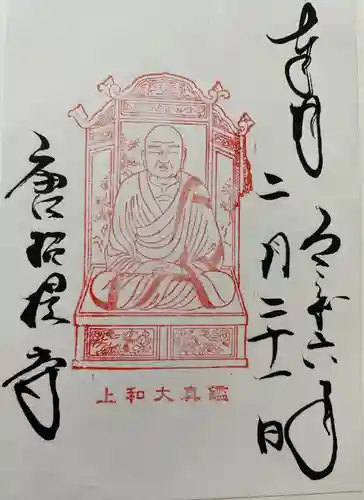 奉拝
令和六年
二月二十一日
上和大真鑑
唐招提寺